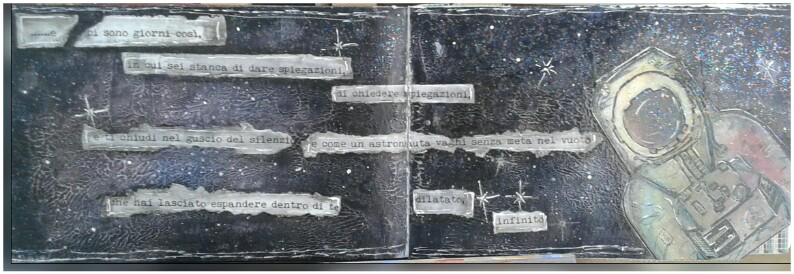 ......e ci sono giorni così,
in cui sei stanca di dare spiegazioni,
di chiedere spiegazioni,
e ti chiudi nel guscio del silenzio
e come un astronauta vaghi senza meta nel vuoto
che hai lasciato espandere dentro di te
dilatato,
infinito